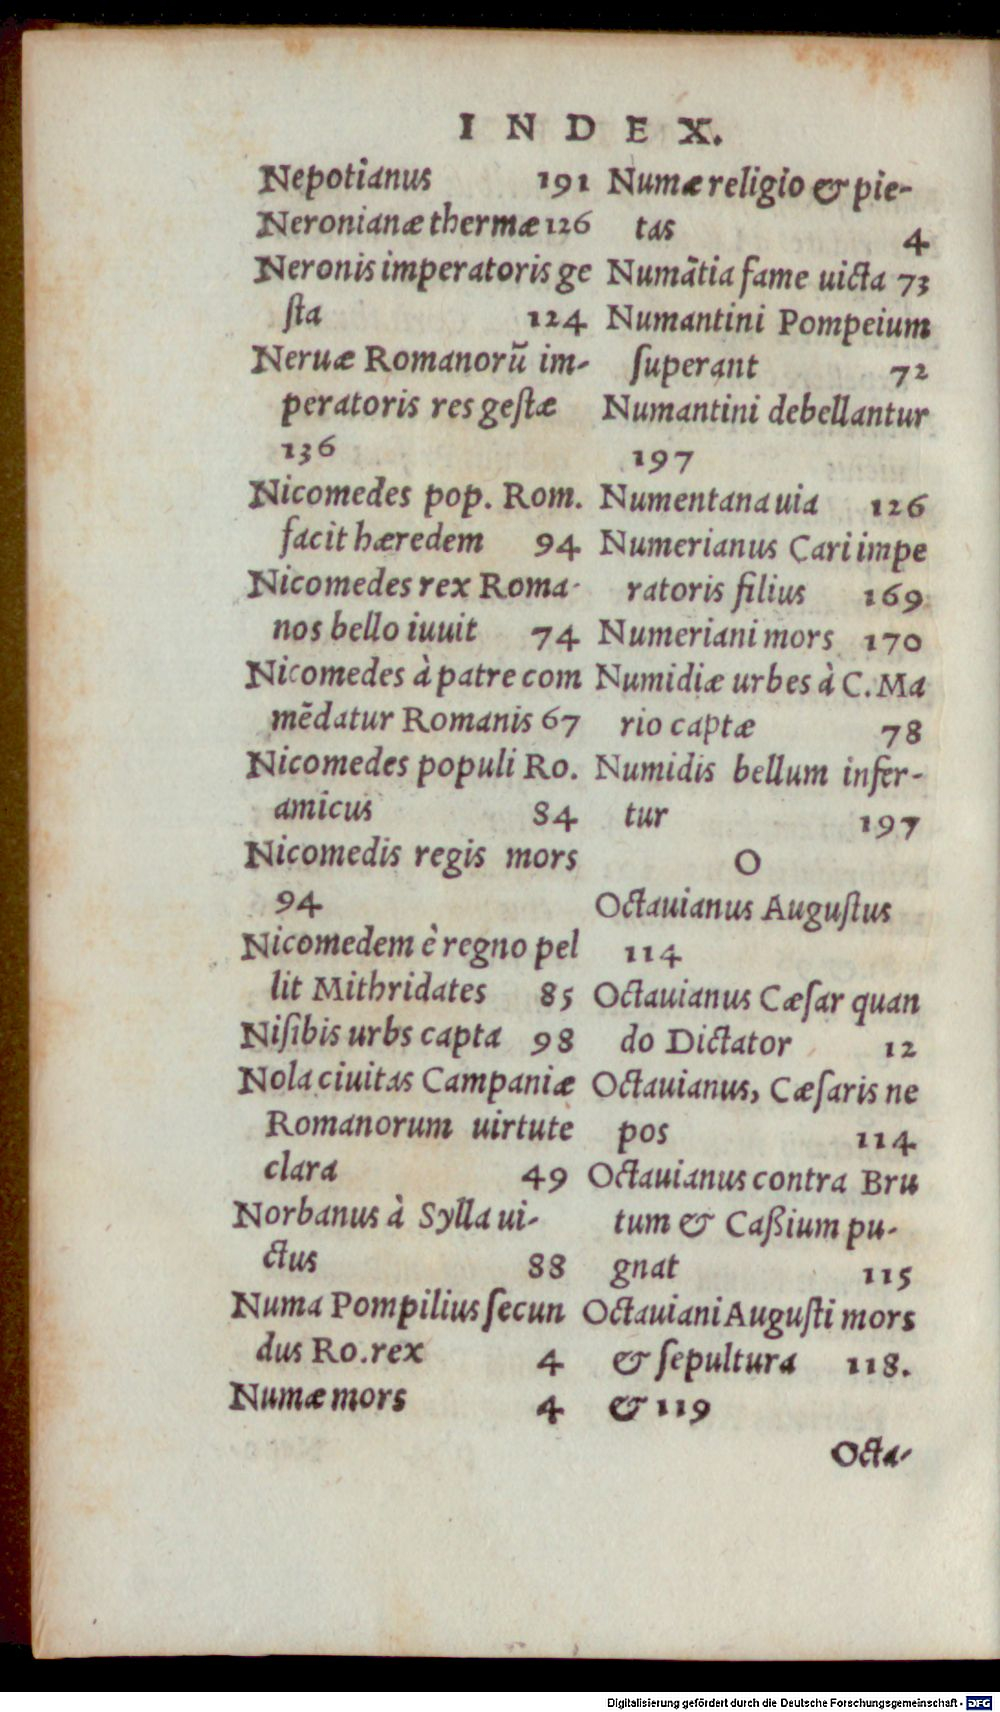 INDEX.
Nepotianus 191
Neronianæ thermæ 126
Neronis imperatoris ge
sta 124
Neruæ Romanorū im-
peratoris res gestæ
136
Nicomedes pop. Rom.
facit hæredem 94
Nicomedes rex Roma-
nos bello iuuit 74
Nicomedes à patre com
mēdatur Romanis 67
Nicomedes populi Ro.
amicus 84
Nicomedis regis mors
94
Nicomedem è regno pel
lit Mithridates 85
Nisibis urbs capta 98
Nola ciuitas Campaniæ
Romanorum uirtute
clara 49
Norbanus à Sylla ui-
ctus 88
Numa Pompilius secun
dus Ro.rex 4
Numæ mors 4
Numæ religio & pie-
tas 4
Numātia fame uicta 73
Numantini Pompeium
superant 72
Numantini debellantur
197
Numentana uia 126
Numerianus Cari impe
ratoris filius 169
Numeriani mors 170
Numidiæ urbes à C. Ma
rio captæ 78
Numidis bellum infer-
tur 197
O
Octauianus Augustus
114
Octauianus Cæsar quan
do Dictator 12
Octauianus, Cæsaris ne
pos 114
Octauianus contra Bru
tum & Caßium pu-
gnat 115
Octauiani Augusti mors
& sepultura 118.
& 119
Octa-
Digitalisierung gefördert durch die Deutsche Forschungsgemeinschaft - DFG